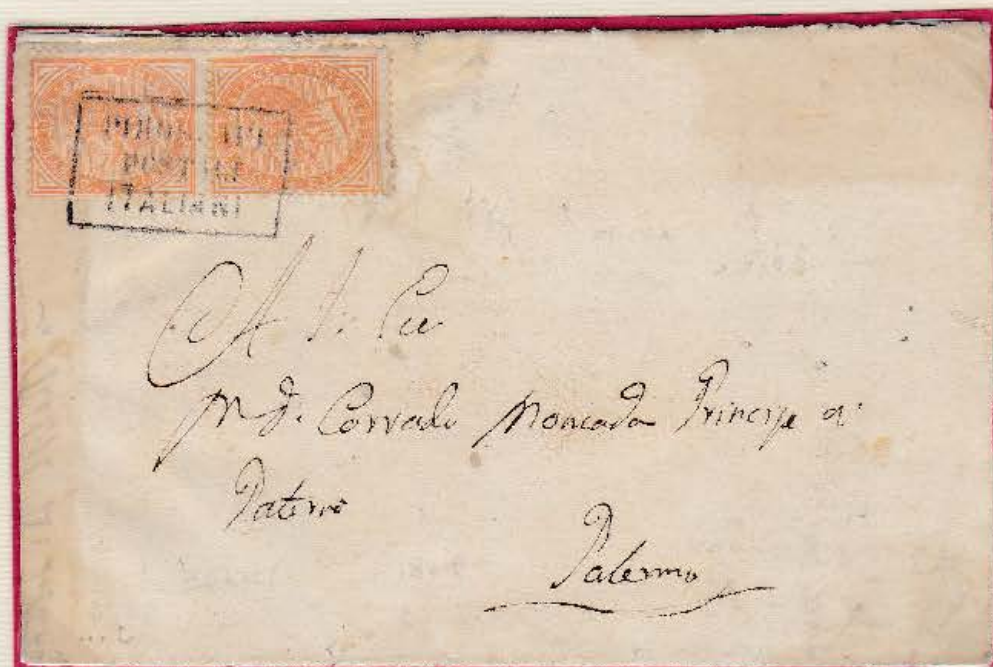 POSTALI
ITALIANI
A S. Ecc
D. Corrado Moncada Principe di
Paternò
Palermo